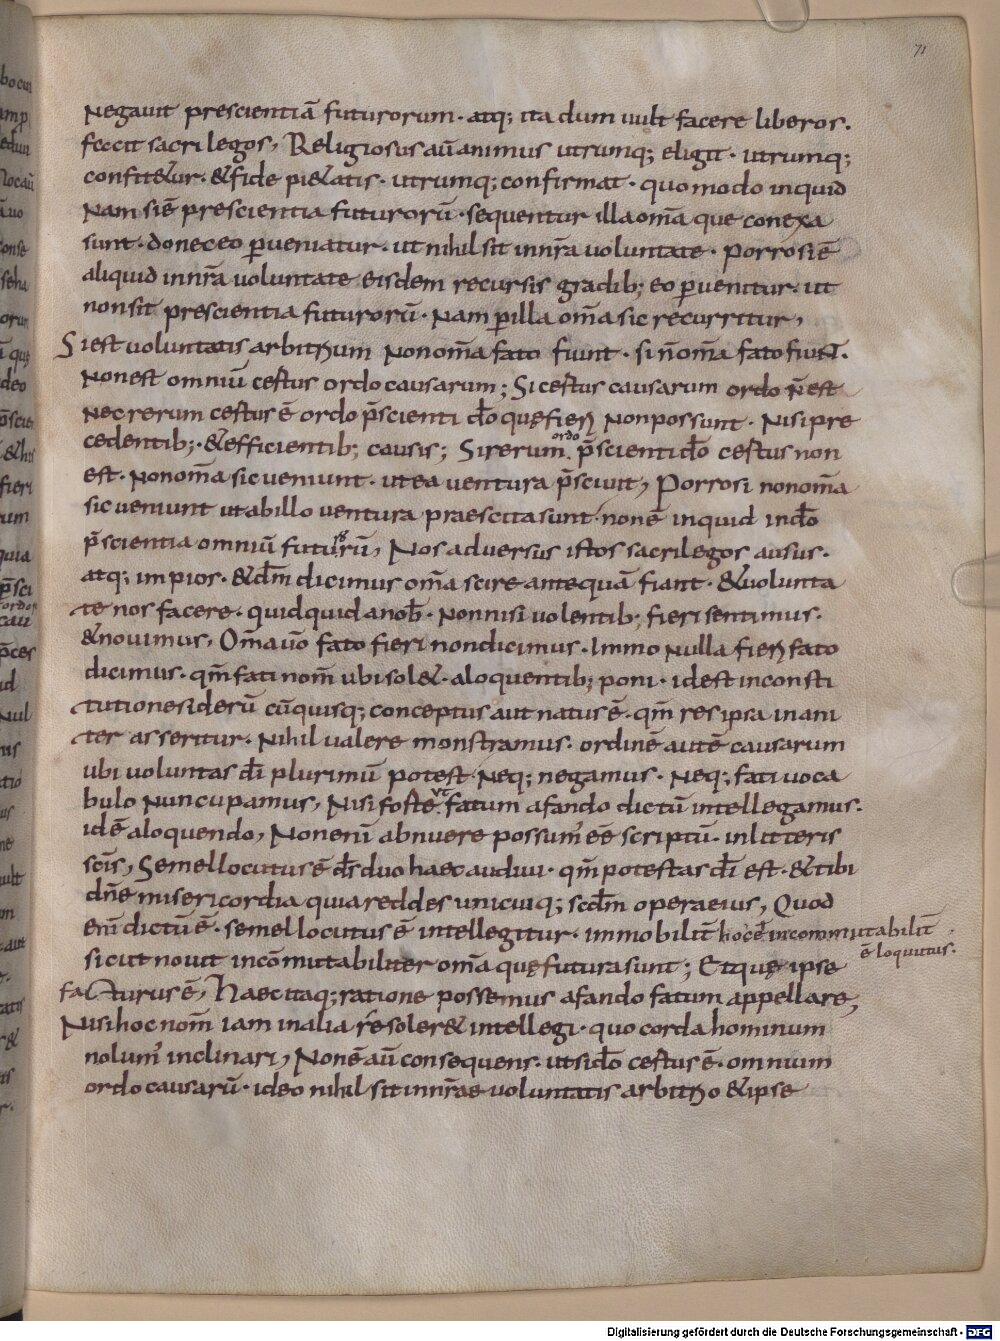 71
Negauit prescientiā futurorum· atq; ita dum uult facere liberos·
fecit sacrilegos, Religiosus aū animus utrumq; eligit· utrumq;
confitetur· & fide pietatis· utrumq; confirmat· quomodo inquid
Nam si ē prescientia futurorū· sequentur illa om̄a que conexa
sunt· donec eo ꝑueniatur· ut nihil sit in nr̄a uoluntate· Porro si ē
aliquid in nr̄a uoluntate eisdem recursis gradib; eo ꝑuenitur· ut
non sit prescientia futurorū· Nam ꝑ illa om̄a sic recurritur,
Si est uoluntatis arbitrium Non om̄a fato fiunt· si n̄ om̄a fato fiunt·
Non est omniū certus ordo causarum; Si certus causarum ordo n̄ est
Nec rerum certus ē ordo p̄scienti dō quę fieri Non possunt· Nisi pre
cedentib;· & efficientib; causis; Si rerum ordo p̄scienti dō certus non
est· Non om̄a sic ueniunt· ut ea uentura p̄sciuit, Porro si non om̄a
sic ueniunt ut ab illo uentura praescita sunt· non ē inquid in dō
p̄scientia omniū futurorū, Nos aduersus istos sacrilegos ausus·
atq; impios· & dm̄ dicimus om̄a scire antequā fiant· & uolunta
te nos facere· quidquid a nob̄· Non nisi uolentib; fieri sentimus·
& nouimus, Om̄a ūo fato fieri non dicimus· Immo Nulla fieri fato
dicimus· qm̄ fati nom̄ ubi solet· a loquentib; poni· id est in consti
tutione siderū cū quisq; conceptus aut natus ē· qm̄ res ipsa inani
ter asseritur· Nihil ualere monstramus· ordinē autē causarum
ubi uoluntas dī plurimū potest· Neq; negamus· Neq; fati uoca
bulo Nuncupamus, Nisi forte ut fatum a fando dictū intellegamus·
id ē a loquendo, Non enī abnuere possum' eē scriptū· in litteris
scīs, Semel locutus ē dς̄ duo haec audiui· qm̄ potestas dī est· & tibi
dn̄e misericordia quia reddes unicuiq; scdm̄ opera eius, Quod
enī dictū ē· semel locutus ē intellegitur· immobilit̄ hoc ē incommutabilit̄
ē loquutus·
sicut nouit incōmutabiliter om̄a quę futura sunt; Et quę ipse
facturus ē, Haec itaq; ratione possemus a fando fatum appellare,
Nisi hoc nom̄ iam in alia rē soleret intellegi· quo corda hominum
nolum' inclinari, Non ē aū consequens· ut si dō certus ē· omnium
ordo causarū· ideo nihil sit in nr̄ae uoluntatis arbitrio & ipse
Digitalisierung gefördert durch die Deutsche Forschungsgemeinschaft - DFG